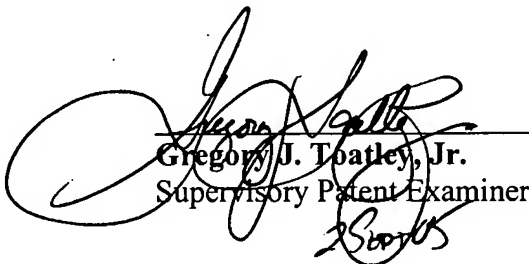 Gregory J. Toatley, Jr.
Supervisory Patent Examiner
2 Sept 05